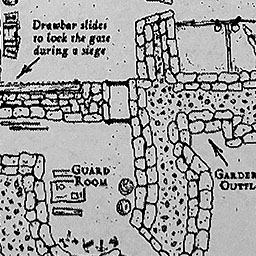 Drawbar slides
to lock the gate
during a siege
GUARD
ROOM
GARDER
OUTL